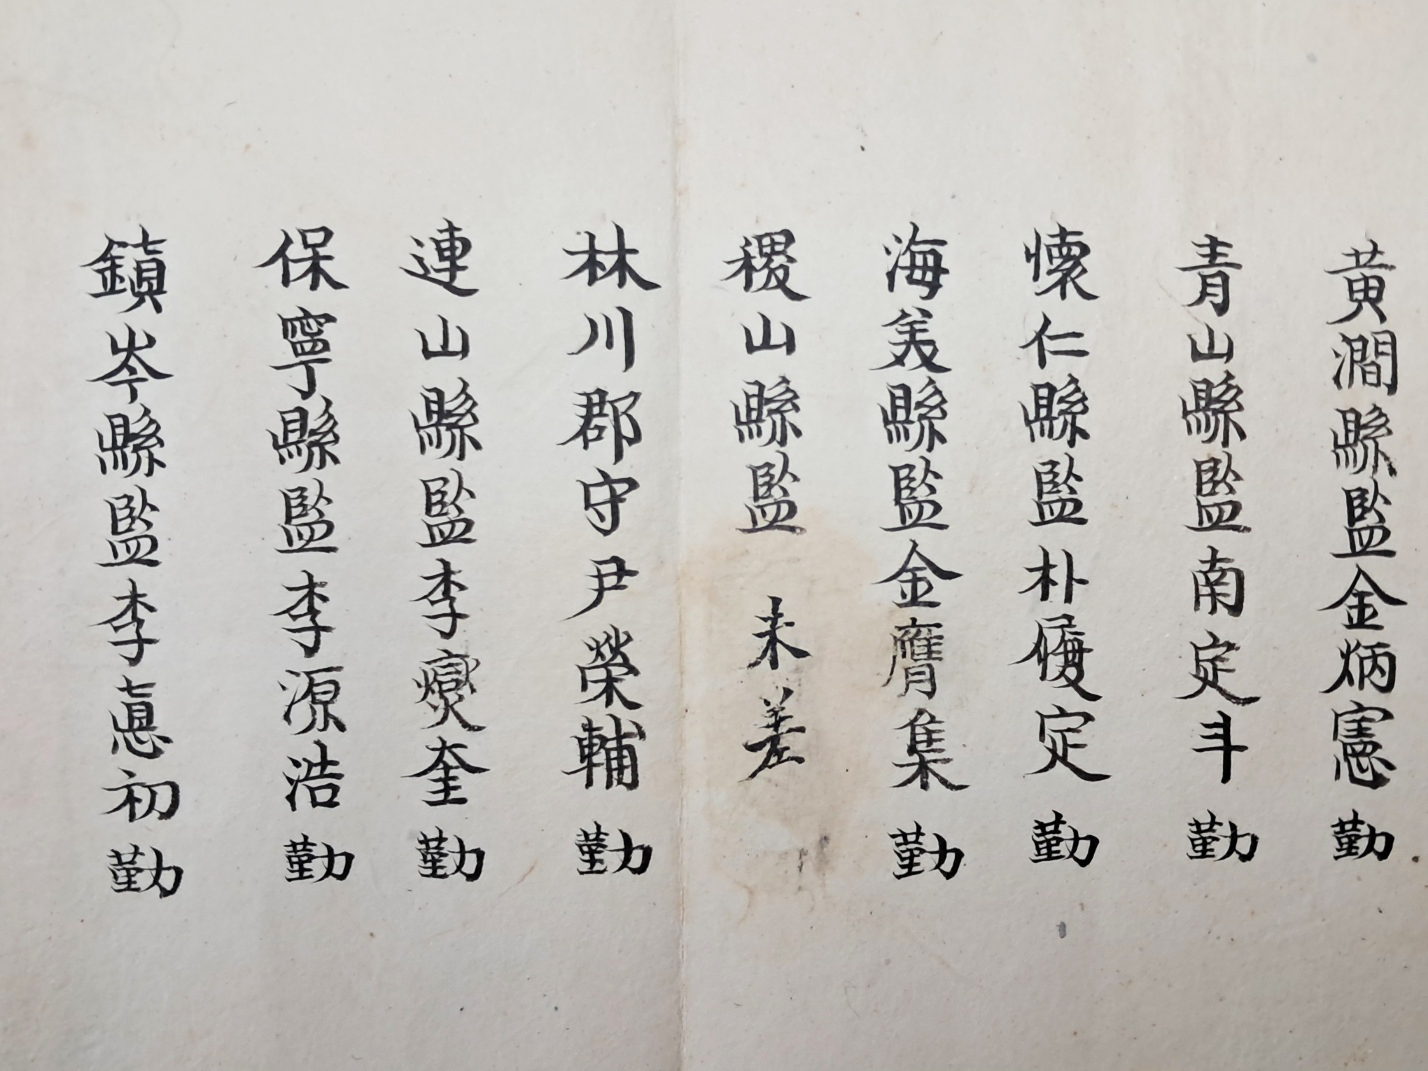 黃澗縣監金炳憲勤
青山縣監南定斗勤
懷仁縣監朴履定勤
海美縣監金膺集勤
稷山縣監 未差
林川郡守尹榮輔勤
連山縣監李燮奎勤
保寧縣監李源浩勤
鎭岑縣監李悳初勤